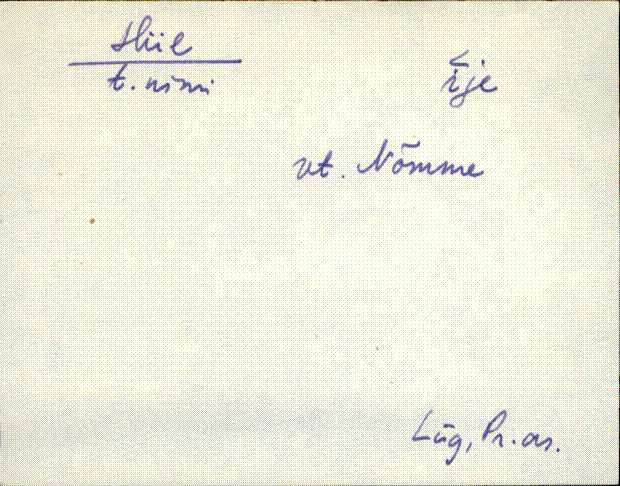 Hiie
t. nimi
īje
vt. Nõmme
Lüg, Pr. as.